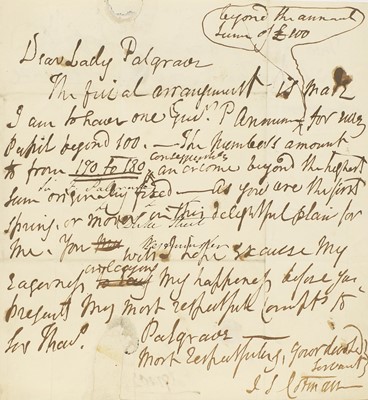 beyond the annual
sum of £100
Dear Lady Palgrave
The final arrangement is made
I am to have one Guin. P Annum for every
Pupil beyond 100. — The numbers amount
to from 170 to 180 consequently
an income beyond the highest
sum originally fixed — As you are the first
spring, or mover in this delightful plan for
me. You will I hope excuse My
Eagerness My happiness before you
present My most respectful Compts to
Sir Thos.
Palgrave
Most respectfully, your devoted
servant
J S Cotman